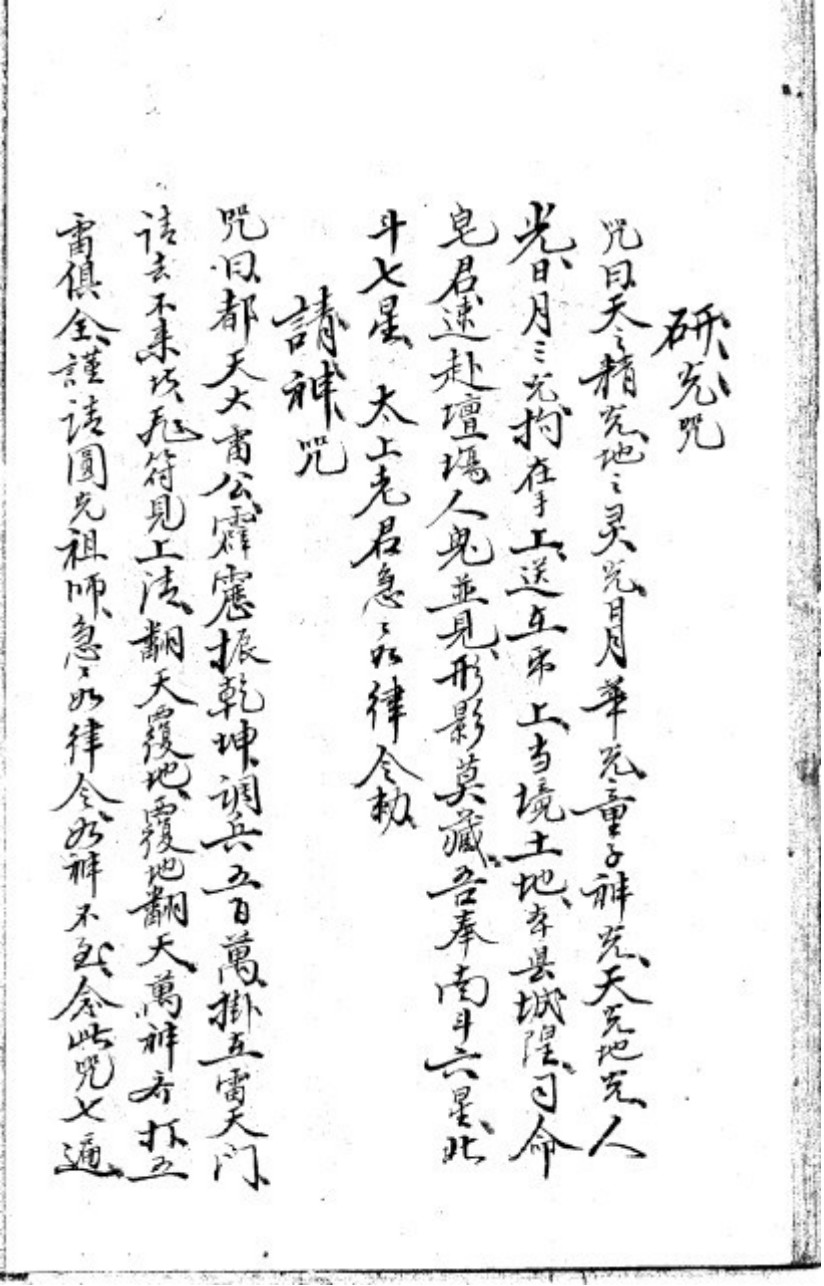 研光咒
咒曰天〻精光地〻灵光日月華光童子神光天光地光人
光日月三光拘在手上送在帋上当境土地本县城隍司命
皂君速赴壇塲人鬼並見形影莫藏吾奉南斗六星北
斗七星 太上老君急〻如律令勑
請神咒
咒曰都天大雷公霹靂振乾坤调兵五百萬掛五雷天门
请去不来 符見上清翻天覆地覆地翻天萬神齐打五
雷俱全謹请圓光祖师急〻如律令如神不到念此咒七遍